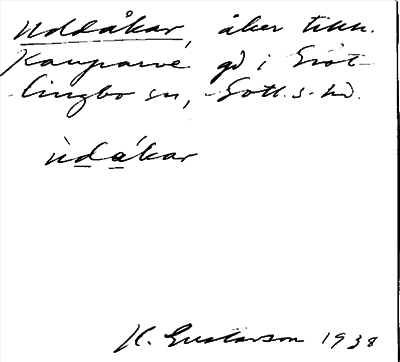 Uddåkar, åker tillh.
Kauparve gd i Gröt-
lingbo sn, Gotl.s. hd.
ùdákar
H. Gustavson 1938